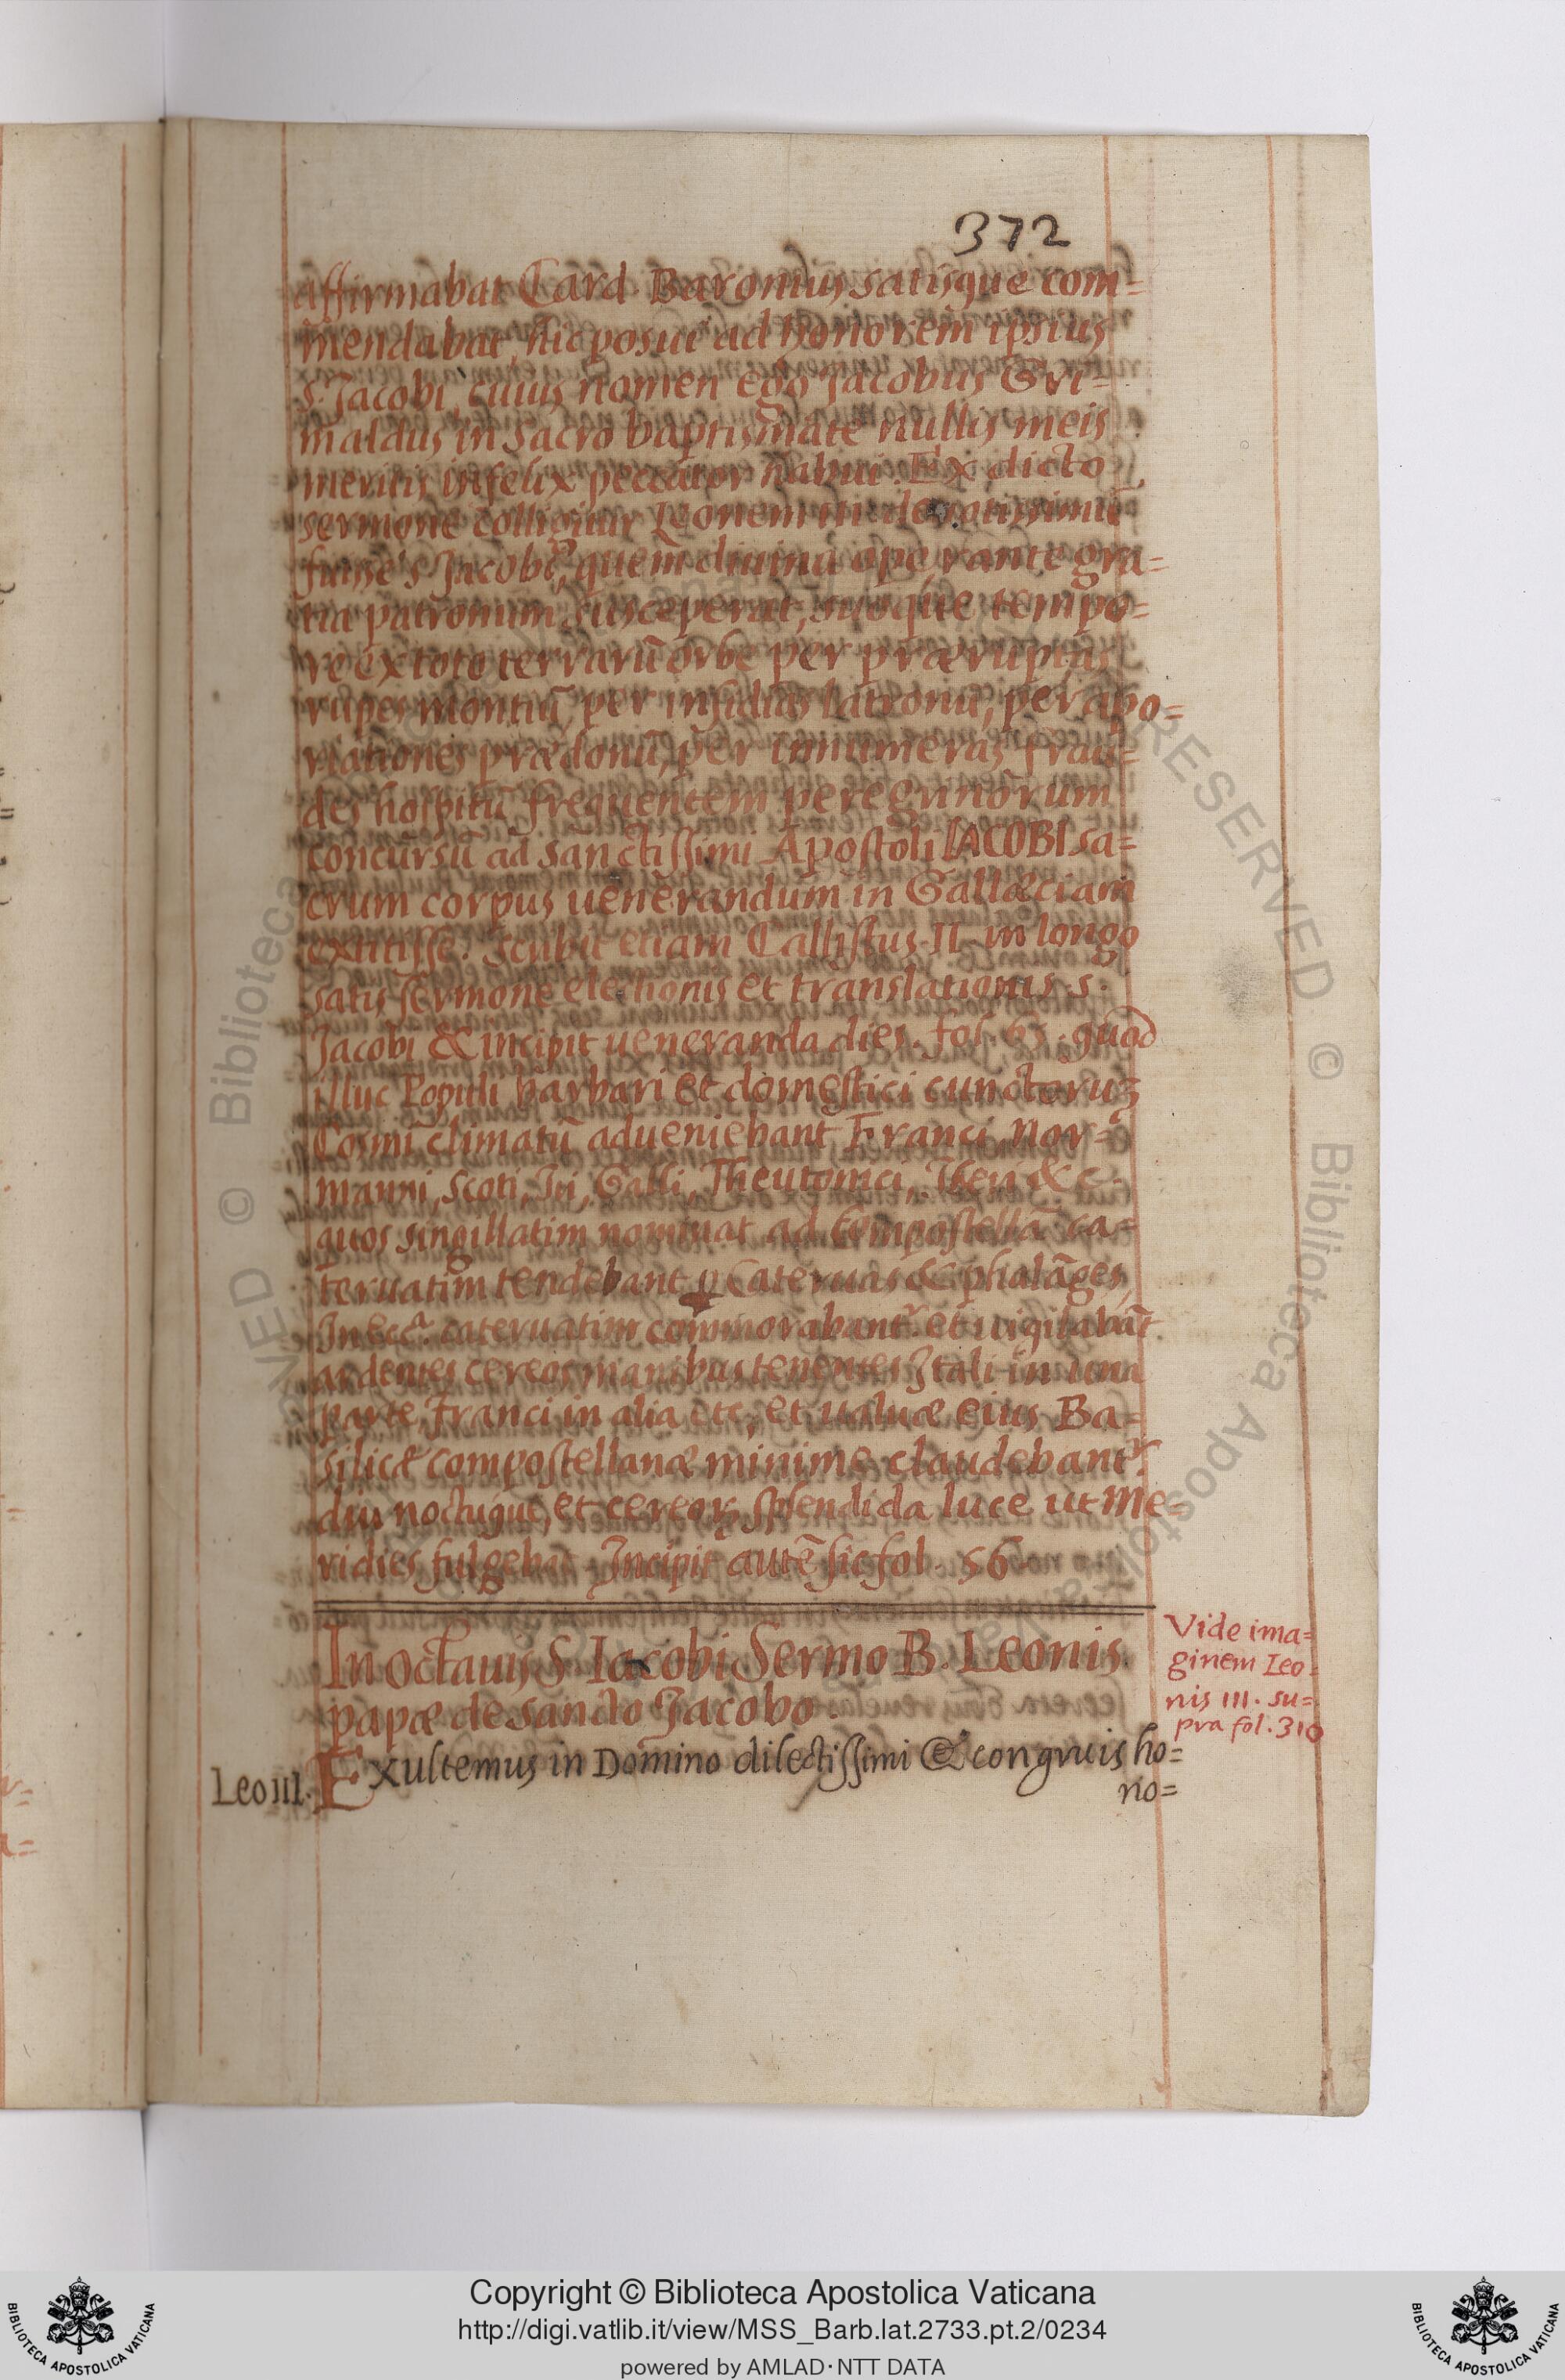 372
affirmabat Card. Baronius satisque com=
mendabat, hic posui ad honorem ipsius
S. Jacobi, cuius nomen ego Jacobus Gri=
maldus in sacro baptismate nullis meis
meritis infelix peccator habui. Ex dicto
sermone colligitur Leonem III deuotissimū
fuisse S. Jacobi, quem diuina operante gra=
tia patronum susceperat, suoque tempo=
re ex toto terrarū orbe per præruptas
rupes montiū, per insidias latronū, per apo=
riationes prædonū, per innumeras frau=
des hospitū frequentem peregrinorum
concursū ad sanctissimi Apostoli IACOBI sa=
crum corpus uenerandum in Gallæciam
extitisse. Scribit etiam Callistus II. in longo
satis sermone electionis et translationis S.
Jacobi & incipit ueneranda dies. fol. 63. quod
illuc Populi barbari et domestici cunctoruȝ
Cosmi climatū adueniebant Franci, Nor=
manni, Scoti, Iri, Galli, Theutonici, Iberi & c.
quos singillatim nominat ad Compostellā ca=
teruatim tendebant p cateruas & phalāges,
In Eccl. cateruatim commorabant. et uigilabāt
ardentes cereos manibus tenentes Itali in una
parte, franci in alia etc, et ualuæ eius Ba=
silicæ compostellanæ minime claudebant.
diu noctuque, et cereoꝝ splendida luce ut me=
ridies fulgebat. Incipit autē sic fol. 56.
In octauis S. Iacobi Sermo B. Leonis
papæ de sancto Jacobo.
Vide ima=
ginem Leo=
nis III. su=
pra fol. 310
Leo III.
Exultemus in Domino dilectissimi & congruis ho=
no=
Copyright © Biblioteca Apostolica Vaticana
http://digi.vatlib.it/view/MSS_Barb.lat.2733.pt.2/0234
powered by AMLAD·NTT DATA
BIBLIOTECA APOSTOLICA VATICANA
BIBLIOTECA APOSTOLICA VATICANA